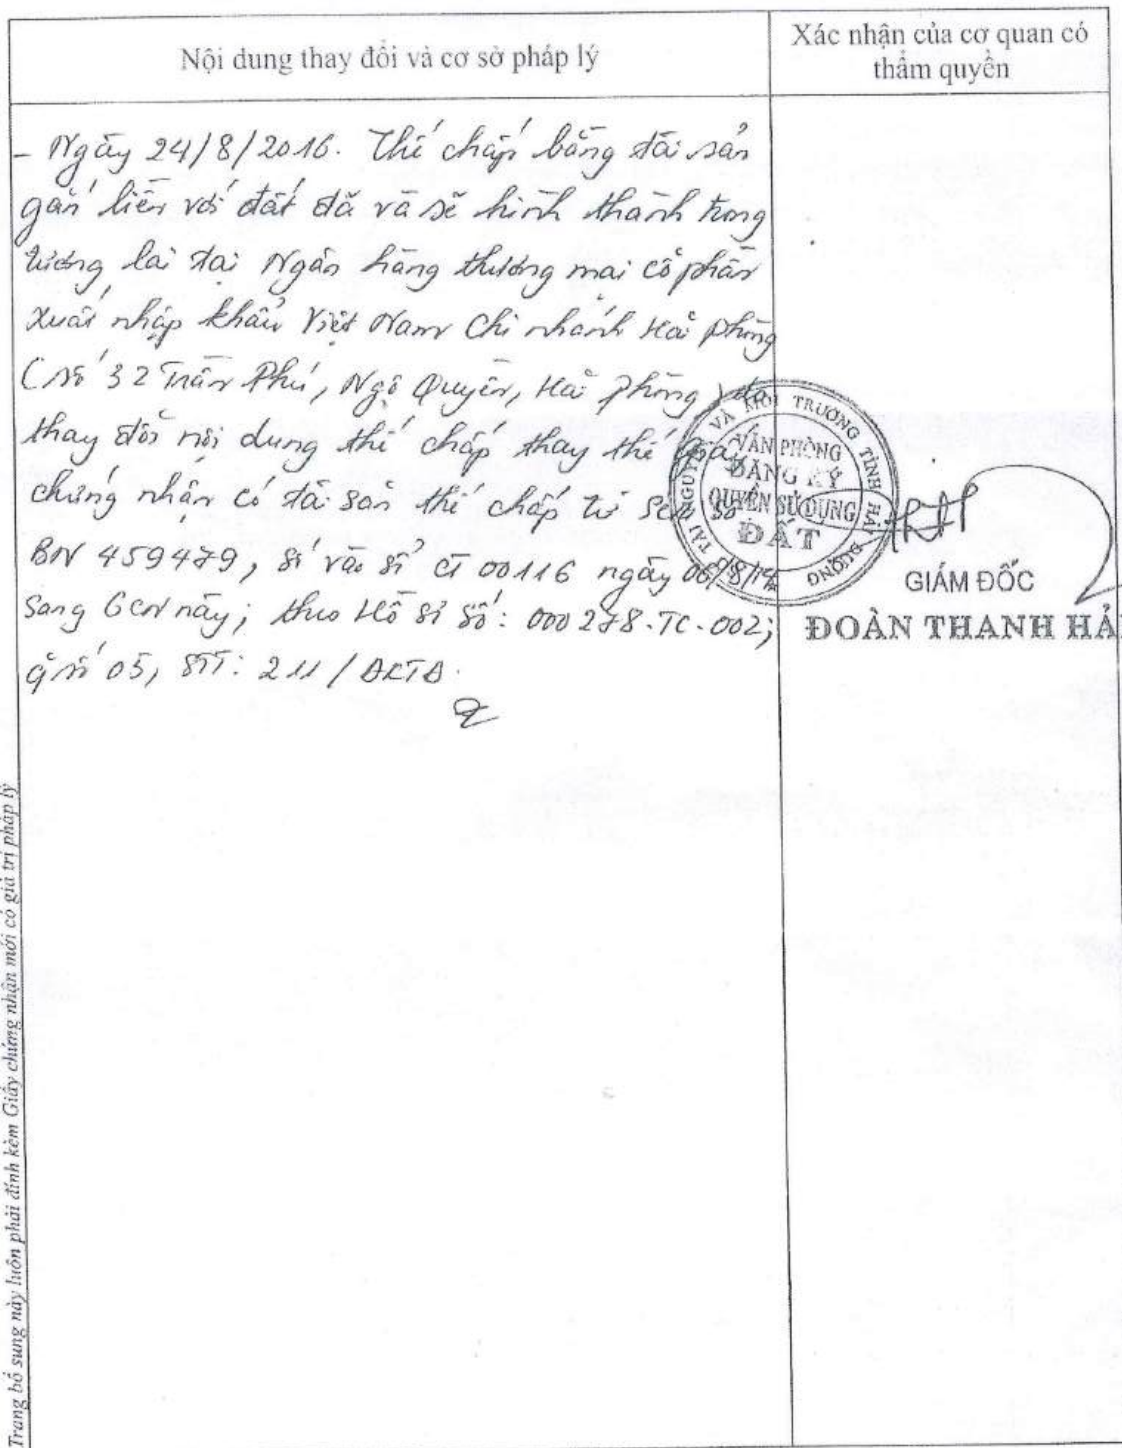 Nội dung thay đổi và cơ sở pháp lý
Xác nhận của cơ quan có
thẩm quyền
- Ngày 24/8/2016. Thế chấp bằng tài sản
gắn liền với đất đã và sẽ hình thành trong
tương lai tại Ngân hàng thương mại cổ phần
xuất nhập khẩu Việt Nam chi nhánh Hải phòng
(Số 32 Trần Phú, Ngô Quyền, Hải phòng) do
thay đổi nội dung thế chấp thay thế Giấy
chứng nhận có tài sản thế chấp từ Seri số
BN 459479, số vào sổ CT 00116 ngày
sang GCN này; theo Hồ sơ số: 000278.TC.002;
q số 05, STT: 211/ĐKTĐ.
TÀI NGUYÊN VÀ MÔI TRƯỜNG TỈNH HẢI DƯƠNG
VĂN PHÒNG
ĐĂNG KÝ
QUYỀN SỬ DỤNG
ĐẤT
GIÁM ĐỐC
ĐOÀN THANH
Trang bổ sung này luôn phải đính kèm Giấy chứng nhận mới có giá trị pháp lý